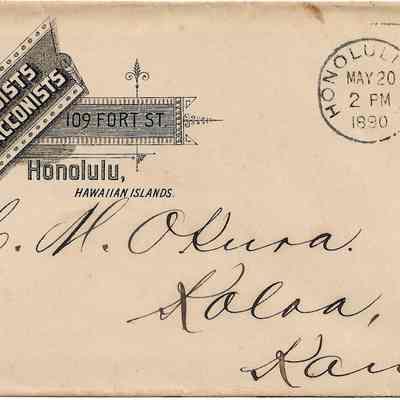 GISTS
CCONISTS
109 FORT ST.
Honolulu,
HAWAIIAN ISLANDS.
HONOLULU
MAY 20
2 PM
1890
C. M. Okura.
Koloa,
Kau